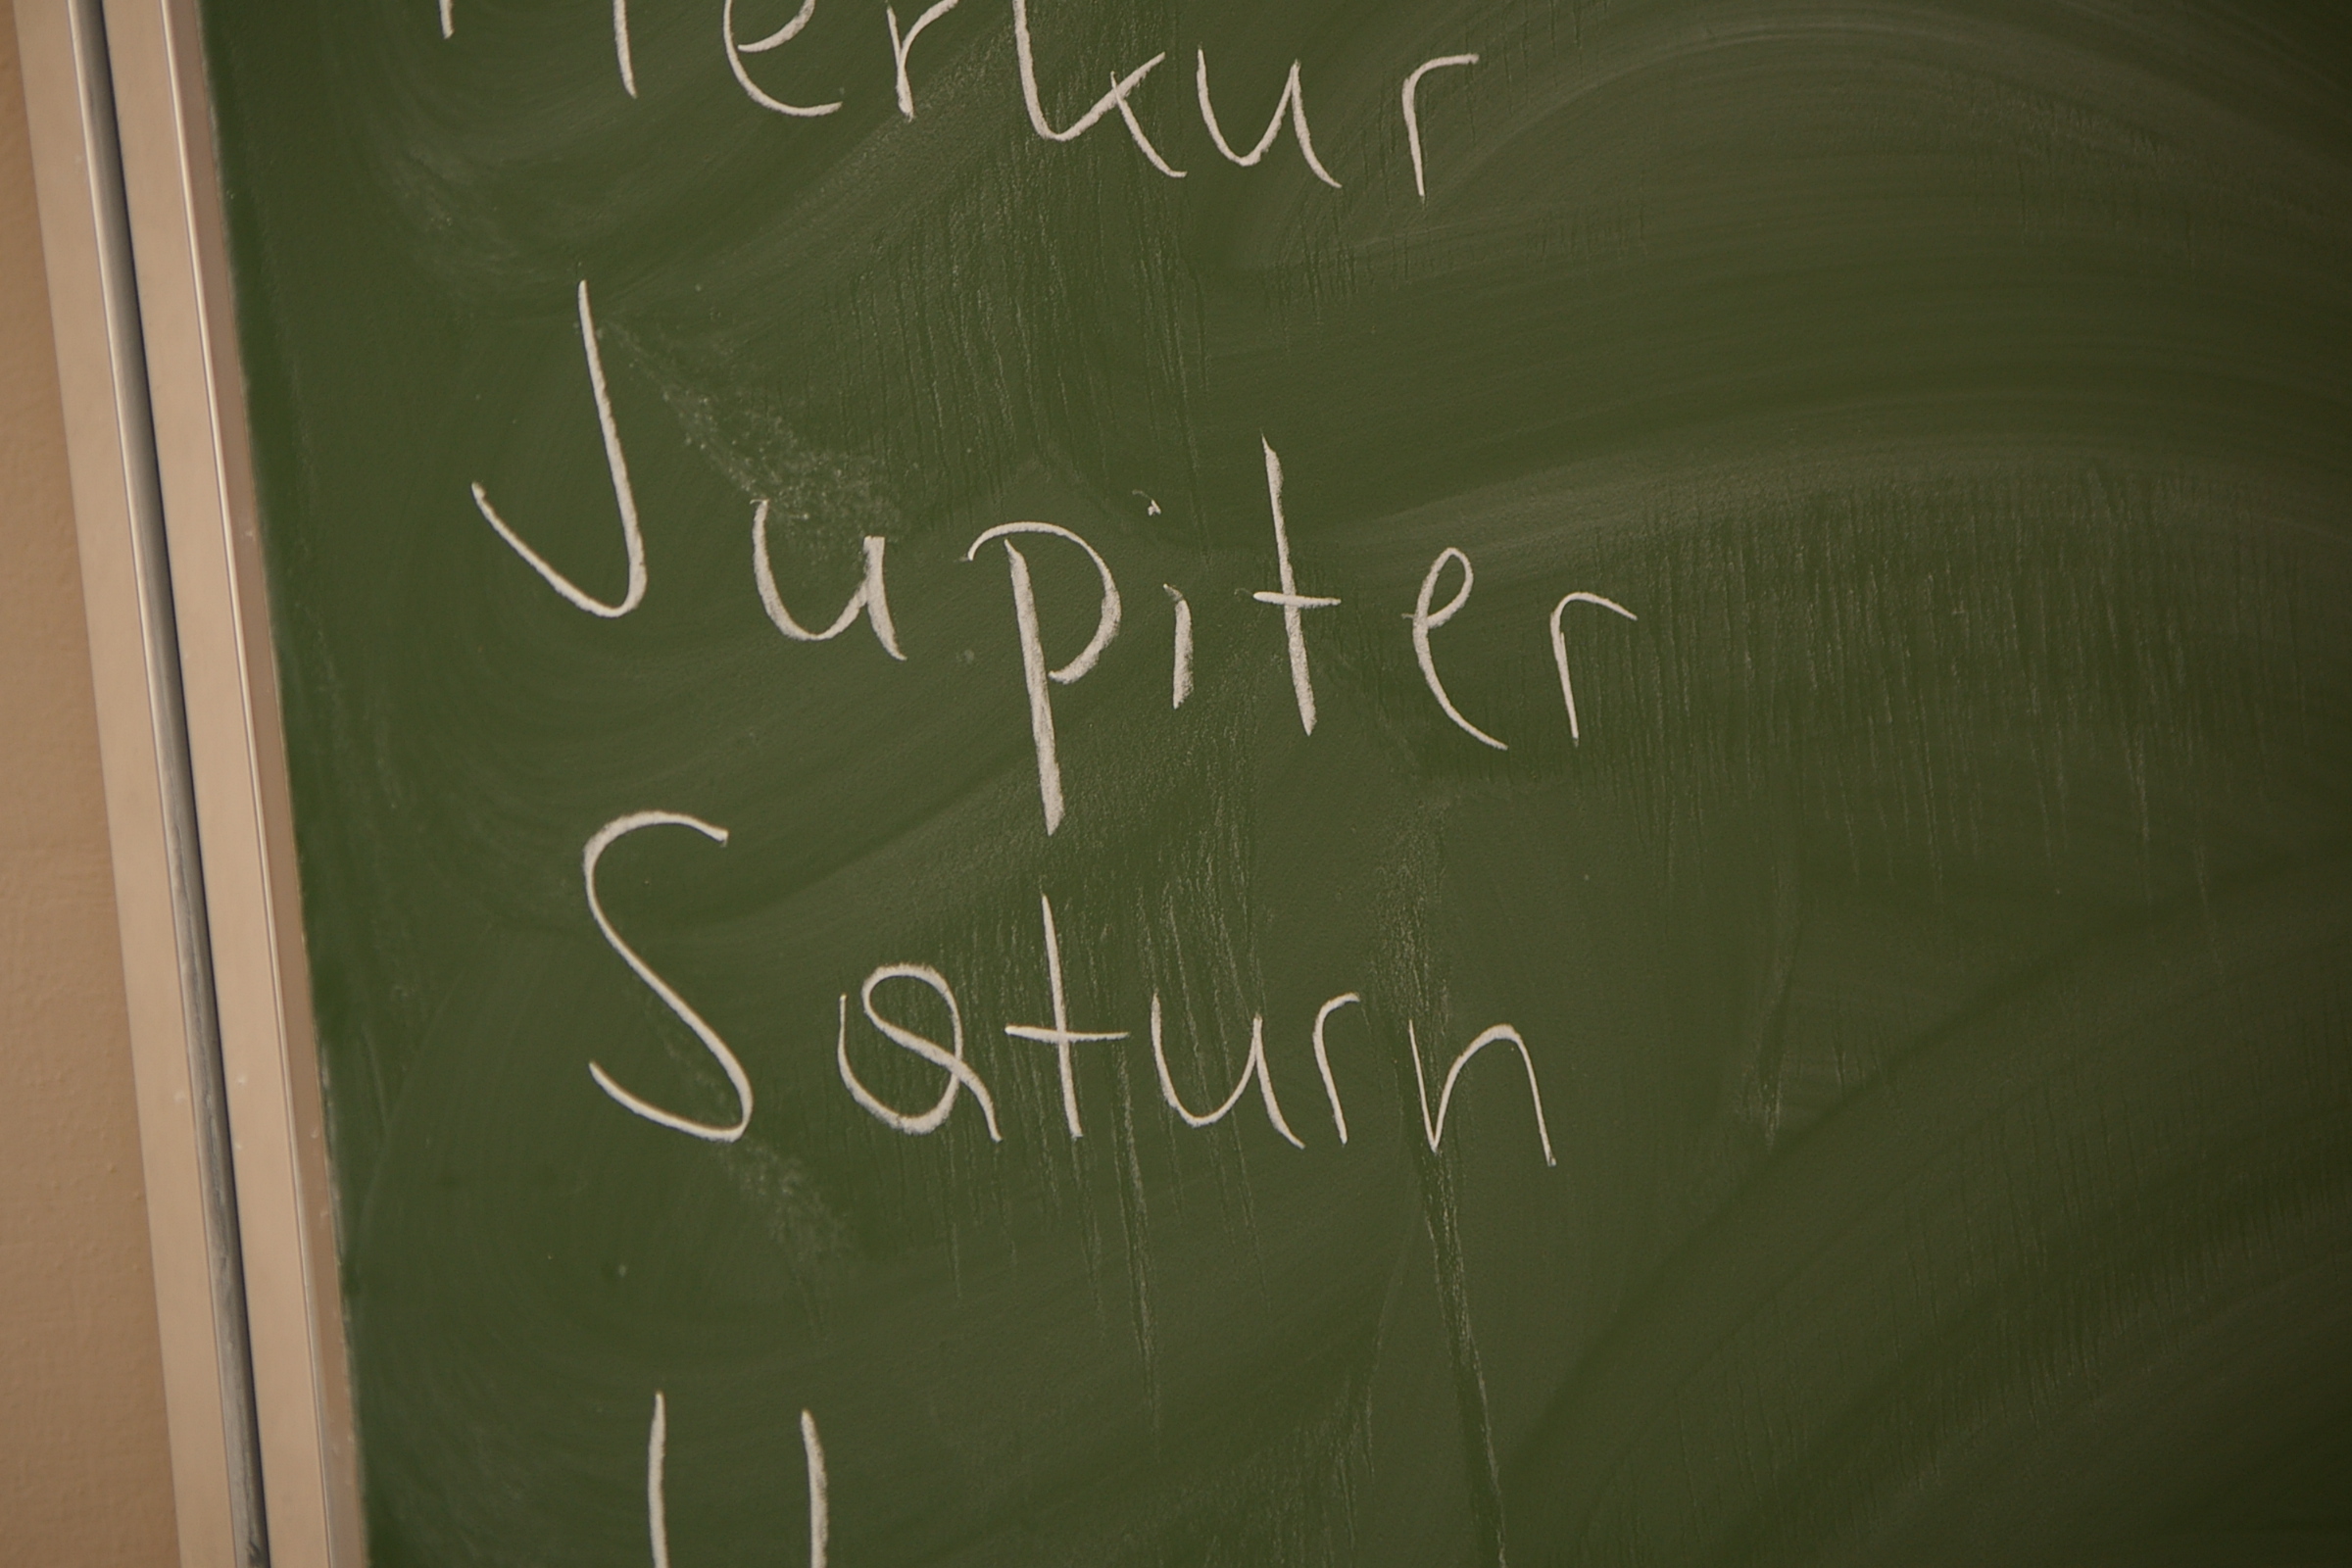 Merkur
Jupiter
Saturn